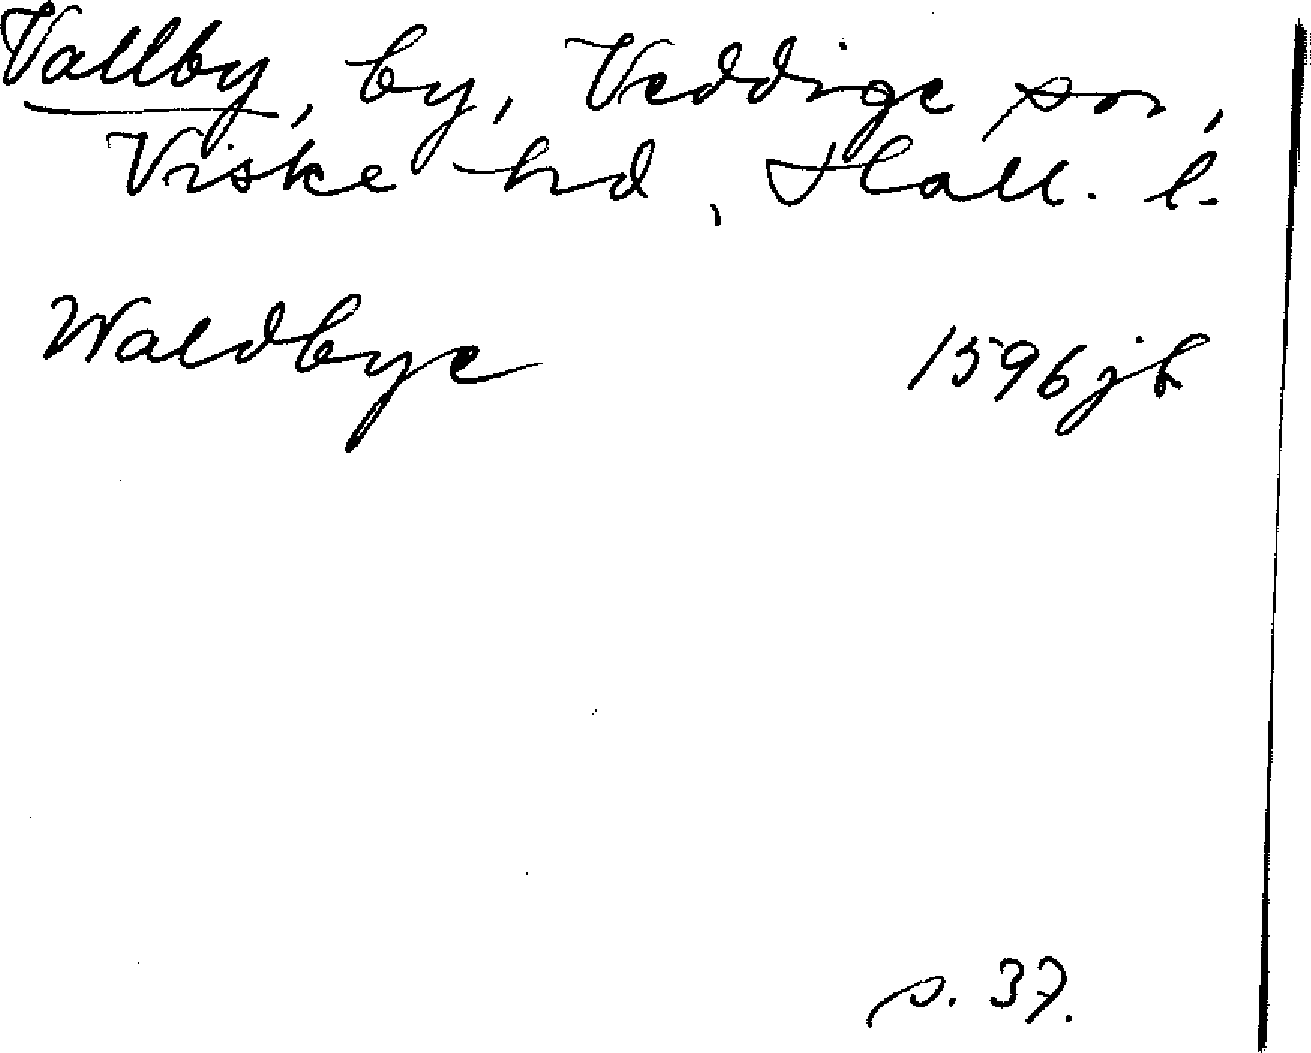 Vallby, by, Veddige sn,
Viske hd, Hall. l.
Waldbye 1596 jb
s. 37.